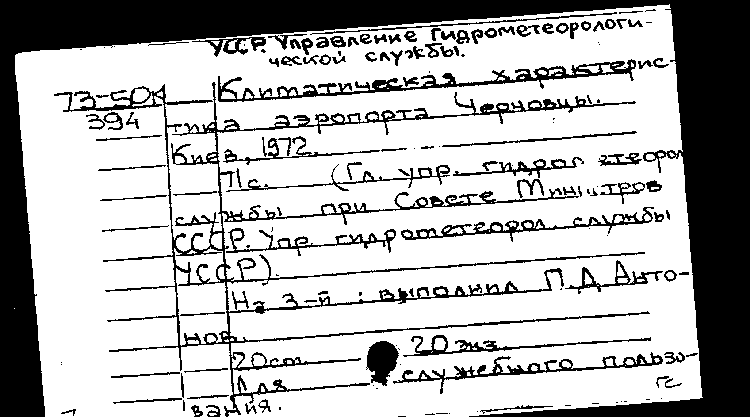 УССР. Управление гидрометеорологи-
ческой службы.
73-504
394
Климатическая характерис-
тика аэропорта Черновцы.
Киев, 1972.
71с. (Гл. упр. гидромeтеорол
службы при Совете Министров
СССР. Упр. гидрометеорол. службы
УССР).
На 3-й : выполнил П.Д. Анто-
нов.
20см 20 экз.
Для служебного пользо-
вания.